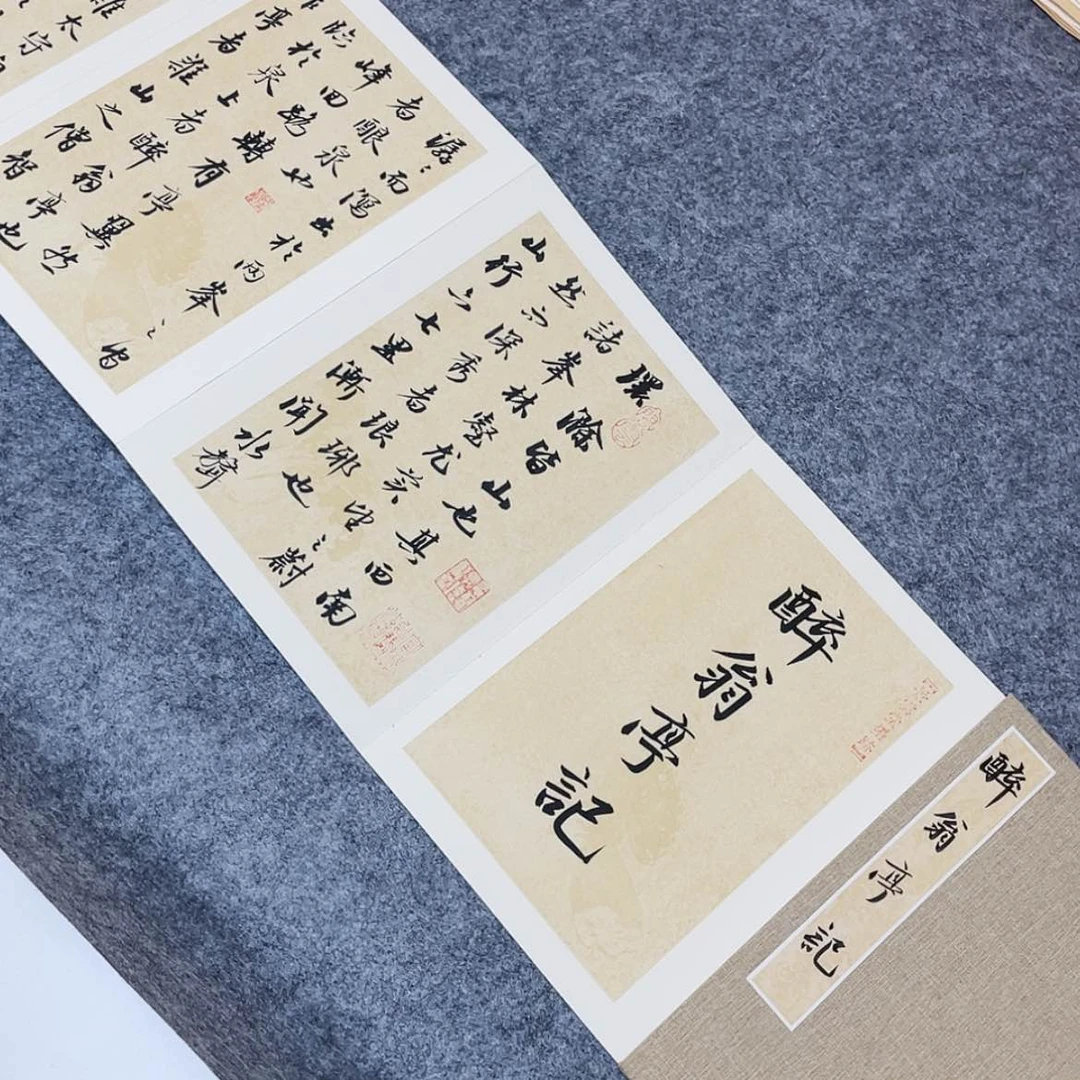 醉翁亭記
醉翁亭記
環滁皆山也其西南
諸峯林壑尤美望之蔚
然而深秀者琅琊也
山行六七里漸聞水聲
潺ミ而瀉出於兩峯之間
者釀泉也
峰回路轉有亭翼然
臨於泉上者醉翁亭也
作亭者誰山之僧智
太守自